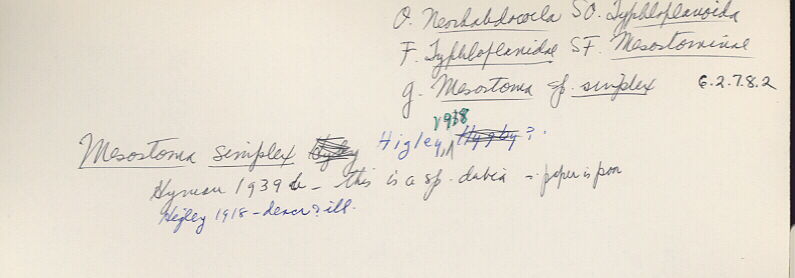 O. Neorhabdocoela SO. Typhloplanoida
F. Typhloplanidae SF. Mesostominae
g. Mesostoma sp. simplex 6.2.7.8.2
Mesostoma simplex Higley, 1918 ?.
Hyman 1939 b - this is a sp. dubia - paper is poor
Higley 1918 - descr ? ill.